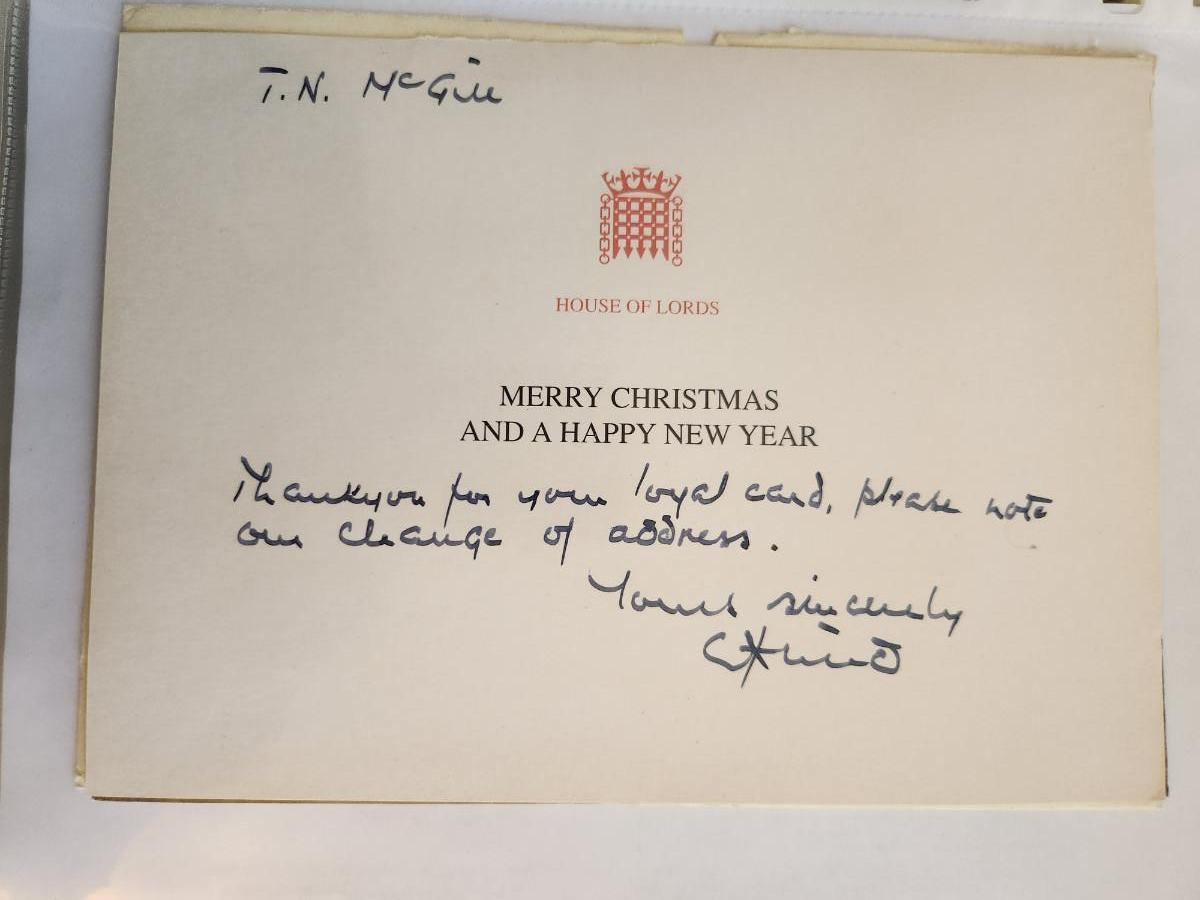 T.N. McGill
HOUSE OF LORDS
MERRY CHRISTMAS
AND A HAPPY NEW YEAR
Thankyou for your loyal card, please note
our change of address.
Yours sincerely